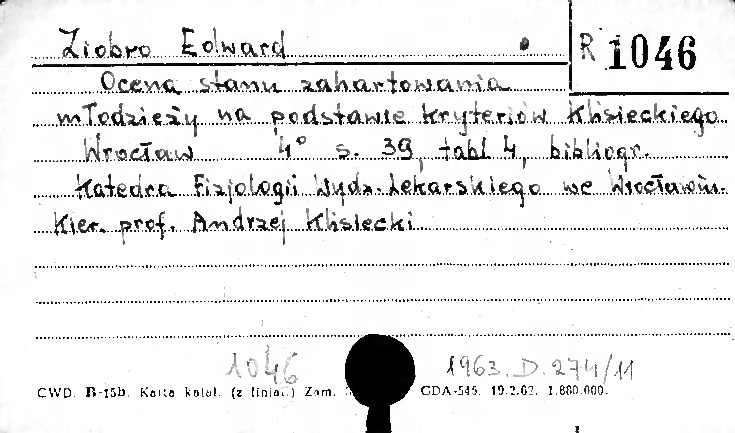 Ziobro Edward
R 1046
Ocena stanu zahartowania
młodzieży na podstawie kryteriów Klisieckiego
Wrocław 4° s. 39, tabl 4, bibliogr.
Katedra Fizjologii Wydz. Lekarskiego we Wrocławiu.
Kier. prof. Andrzej Klisiecki
1046
1963. D. 274/11
CWD. B-15b. Karta katal. (z liniat.) Zam. GDA-545. 19.2.62. 1.880.000.